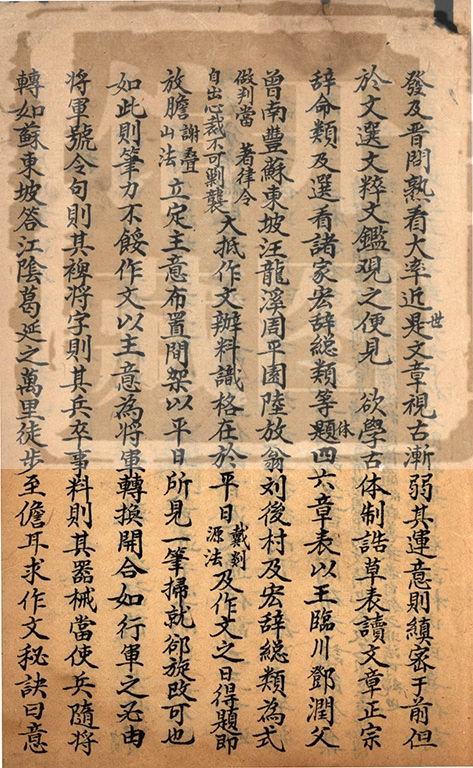 發及晋問熟看大率近是世文章視古漸弱其運意則縝密于前但
於文選文粹文鑑观之便見 欲學古体制誥草表讀文章正宗
辞命類及選看諸家宏辞総類等題体四六章表以王臨川鄧潤父
曾南豐蘇東坡汪龍溪周平園陸放翁刘後村及宏辞総類為式
做判當著律令自出心裁不可剿襲大抵作文辦料識格在於平日戴剡源法及作文之日得題即
放膽謝疊山法立定主意布置間架以平日所見一筆掃就卻旋改可也
如此則筆力不餒作文以主意為將軍轉換開合如行軍之必由
將軍號令句則其裨将字則其兵卒事料則其器械當使兵隨將
轉如蘇東坡答江陰葛延之萬里徒步至儋耳求作文秘訣曰意